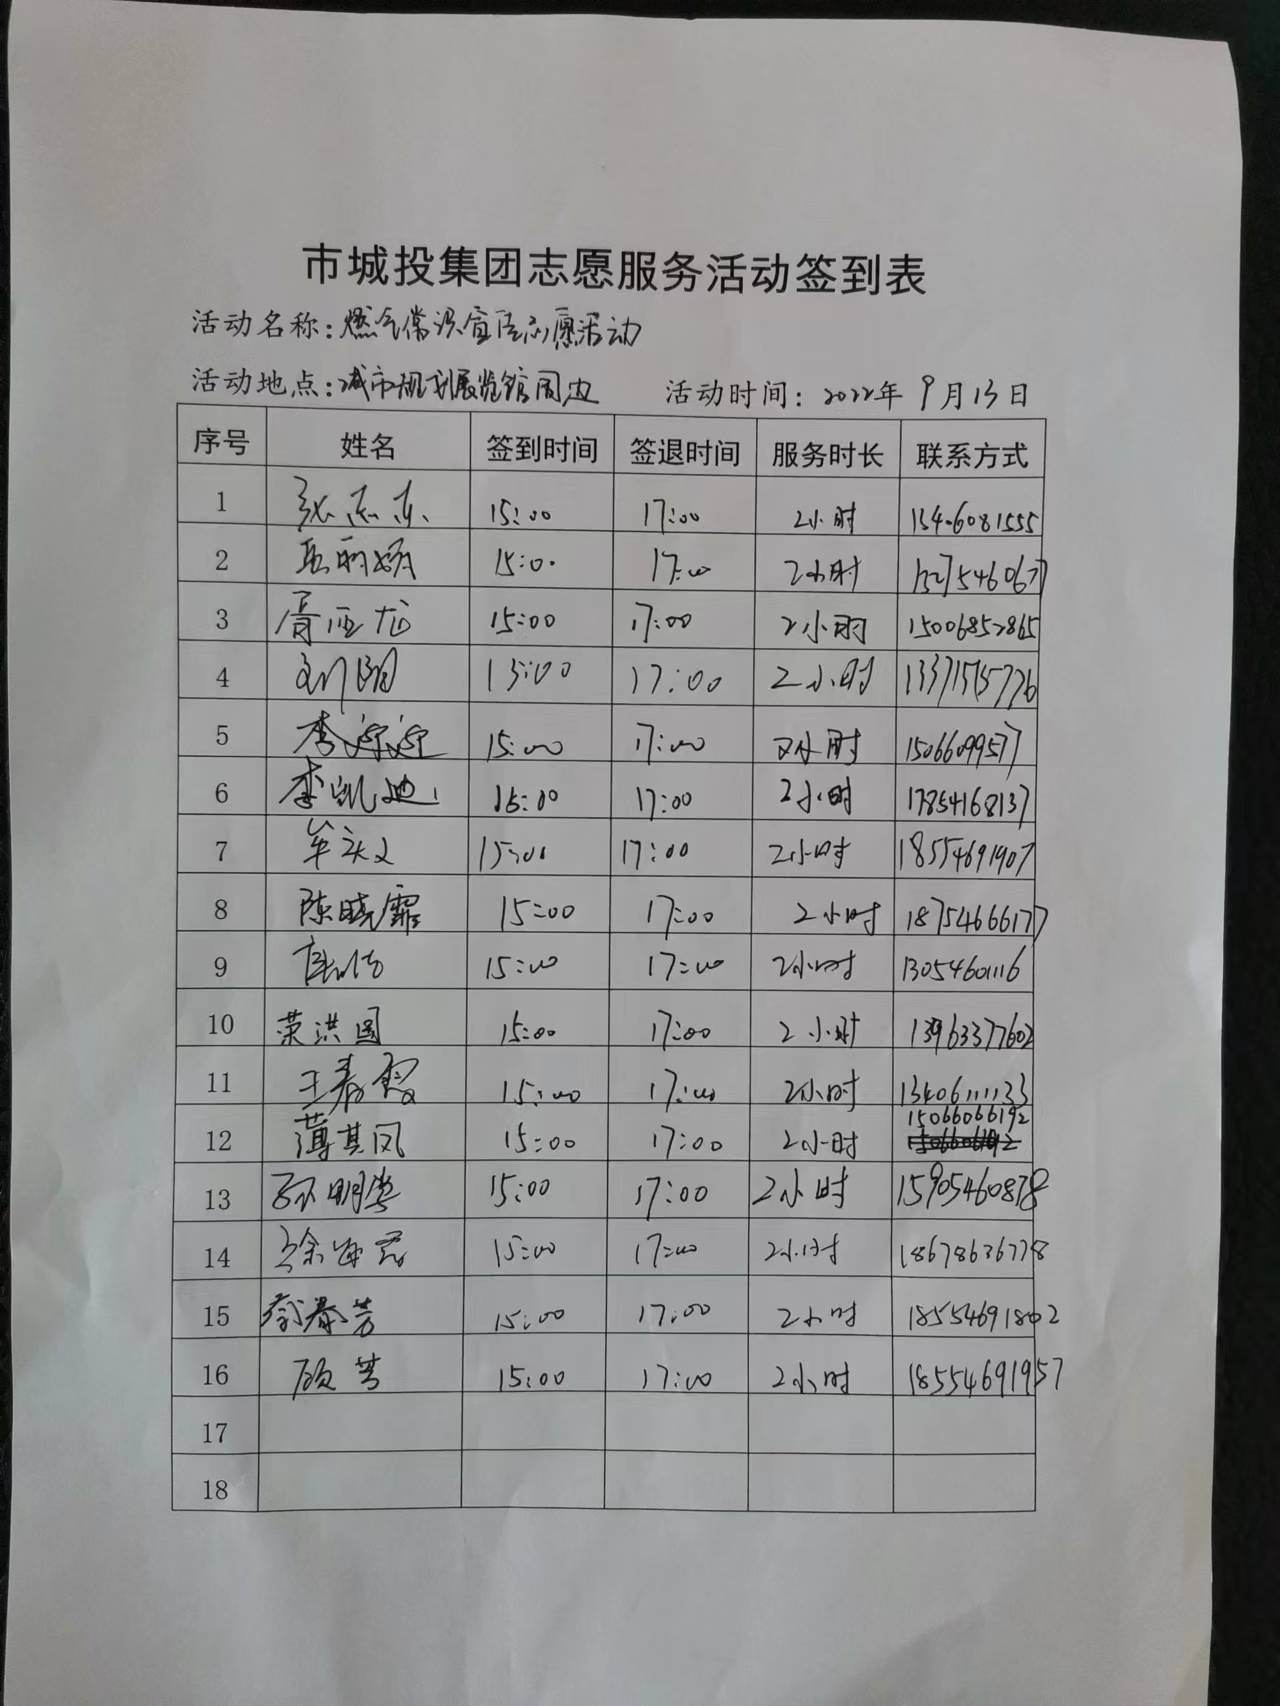 市城投集团志愿服务活动签到表
活动名称：燃气常识宣传志愿活动
活动地点：城市规划展览馆周边 活动时间：2022年9月13日
序号 姓名 签到时间 签退时间 服务时长 联系方式
1 张志东 15:00 17:00 2小时 15406081555
2 15:00 17:00 2小时 15275460677
3 胥亚龙 15:00 17:00 2小时 15006852865
4 15:00 17:00 2小时 13371515776
5 李婷婷 15:00 17:00 2小时 15066099577
6 李凯迪 15:00 17:00 2小时 17854168137
7 15:00 17:00 2小时 18554691907
8 陈晓霏 15:00 17:00 2小时 18754666177
9 15:00 17:00 2小时 13054601116
10 荣洪国 15:00 17:00 2小时 13963377602
11 王春霞 15:00 17:00 2小时 13406111133
12 薄其凤 15:00 17:00 2小时 15066066192
13 孙明堂 15:00 17:00 2小时 15905460878
14 15:00 17:00 2小时 18678636778
15 15:00 17:00 2小时 18554691802
16 顾芳 15:00 17:00 2小时 18554691957
17
18